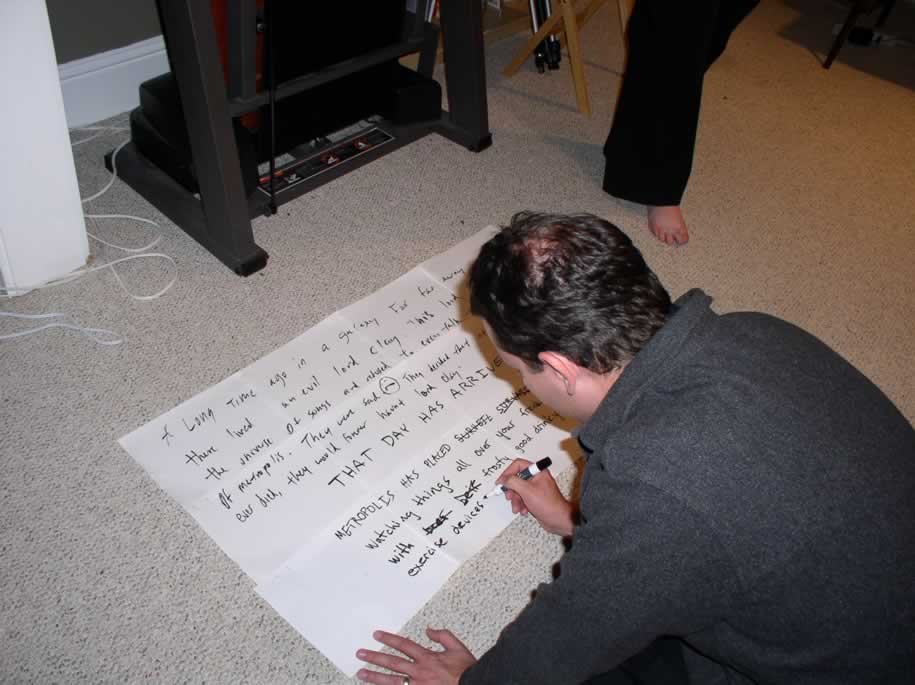 A Long Time ago in a galaxy Far far away
there lived an evil lord Clay. This lord
the universe of songs and refused to ever talk
of metropolis. They were sad They decided that
ever died, they would forever haunt lord Clay.
THAT DAY HAS ARRIVE
METROPOLIS HAS PLACED
watching things all over your
with frosty good drink
exercise devices